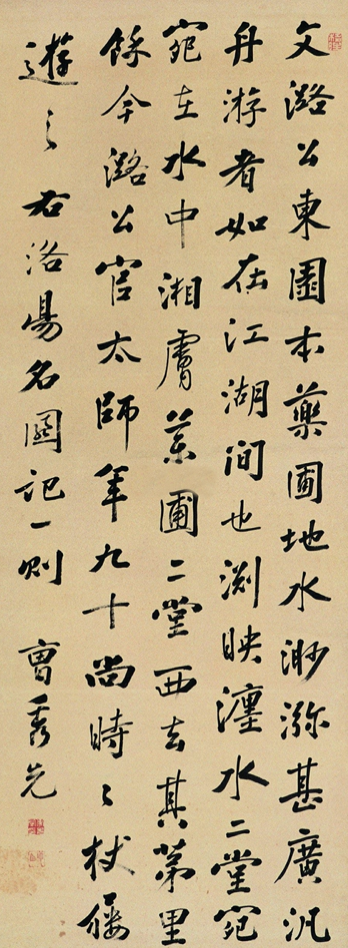 文潞公東園本藥圃地水渺㳽甚廣汎
舟游者如在江湖間也渕映瀍水二堂宛
宛在水中湘膚藥圃二堂西去其第里
餘今潞公官太師年九十尚時〻杖屨
遊之右洛陽名園記一則 曹秀先